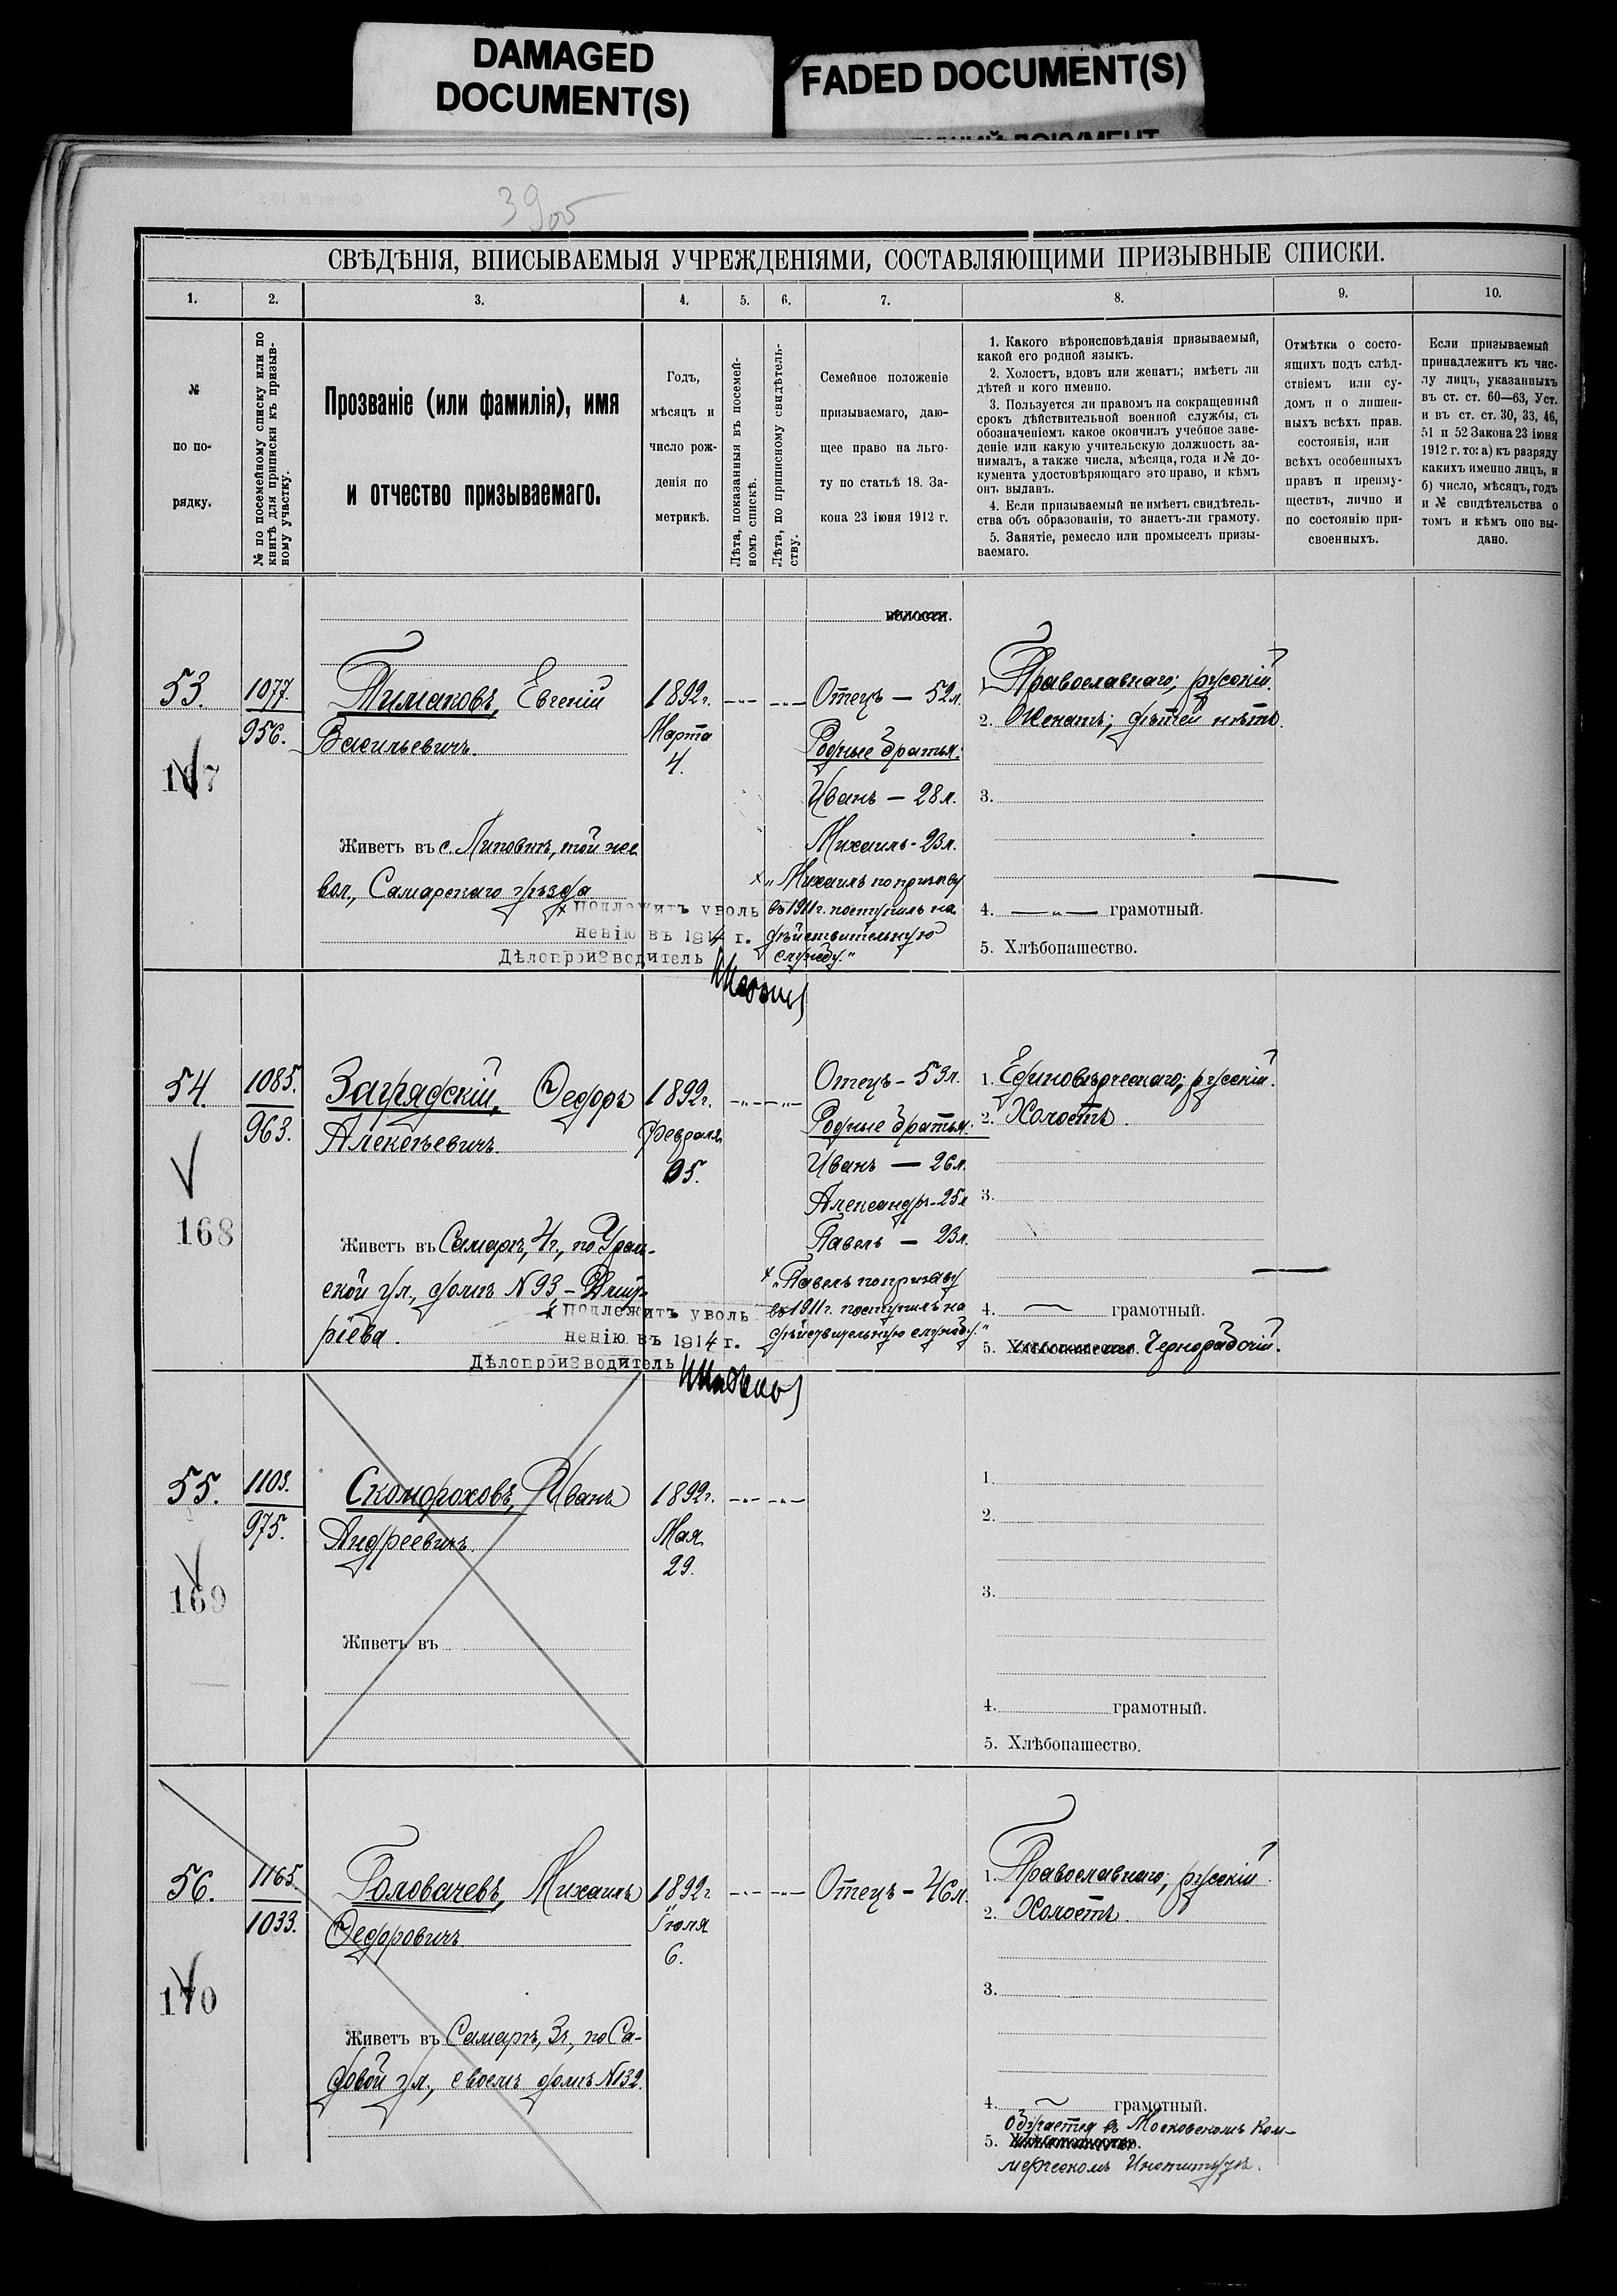 DAMAGED
DOCUMENT(S)
FADED DOCUMENT(S)
3905
СВѢДѢНІЯ, ВПИСЫВАЕМЫЯ УЧРЕЖДЕНІЯМИ, СОСТАВЛЯЮЩИМИ ПРИЗЫВНЫЕ СПИСКИ.
1. 2. 3. 4. 5. 6. 7. 8. 9. 10.
№
по по-
рядку.
№ по посемейному списку или по
книгѣ для приписки къ призыв-
ному участку.
Прозваніе (или фамилія), имя
и отчество призываемаго.
Годъ,
мѣсяцъ и
число рож-
денія по
метрикѣ.
Лѣта, показанныя въ посемей-
номъ спискѣ.
Лѣта, по приписному свидѣтель-
ству.
Семейное положеніе
призываемаго, даю-
щее право на льго-
ту по статьѣ 18. За-
кона 23 іюня 1912 г.
1. Какого вѣроисповѣданія призываемый,
какой его родной языкъ.
2. Холостъ, вдовъ или женатъ; имѣетъ ли
дѣтей и кого именно.
3. Пользуется ли правомъ на сокращенный
срокъ дѣйствительной военной службы, съ
обозначеніемъ какое окончилъ учебное заве-
деніе или какую учительскую должность за-
нималъ, а также числа, мѣсяца, года и № до-
кумента удостовѣряющаго это право, и кѣмъ
онъ выданъ.
4. Если призываемый не имѣетъ свидѣтель-
ства объ образованіи, то знаетъ-ли грамоту.
5. Занятіе, ремесло или промыселъ призы-
ваемаго.
Отмѣтка о состо-
ящихъ подъ слѣд-
ствіемъ или су-
домъ и о лишен-
ныхъ всѣхъ прав.
состоянія, или
всѣхъ особенныхъ
правъ и преиму-
ществъ, лично и
по состоянію при-
своенныхъ.
Если призываемый
принадлежитъ къ чис-
лу лицъ, указанныхъ
въ ст. ст. 60—63, Уст.
и въ ст. ст. 30, 33, 46,
51 и 52 Закона 23 іюня
1912 г. то: а) къ разряду
какихъ именно лицъ, и
б) число, мѣсяцъ, годъ
и № свидѣтельства о
томъ и кѣмъ оно вы-
дано.
волости.
53.
167
1077.
956.
Тимаковъ, Евгеній
Васильевичъ.
Живетъ въ с. Липовкѣ, той же
вол., Самарскаго уѣзда
х Подлежитъ уволь
ненію въ 1914 г.
Дѣлопроизводитель
1892 г.
Марта
4.
Отецъ — 52 л.
Родные братья:
Иванъ — 28 л.
Михаилъ - 23 л.
х „Михаилъ по призыву
въ 1911 г. поступилъ на
дѣйствительную
службу.“
1. Православнаго; русскій.
2. Женатъ; дѣтей нѣтъ.
3.
4. — „ — грамотный.
5. Хлѣбопашество.
54.
168
1085.
963.
Заградскій, Ѳедоръ
Алексѣевичъ.
Живетъ въ Самарѣ, 4 ч., по Урал-
ской ул., домъ № 93, — Дмит-
ріева.
х Подлежитъ уволь
ненію въ 1914 г.
Дѣлопроизводитель
1892 г.
Февраля
05.
Отецъ - 53 л.
Родные братья:
Иванъ — 26 л.
Александръ - 25 л
Павелъ — 23 л.
х „Павелъ по призыву
въ 1911 г. поступилъ на
дѣйствительную службу.“
1. Единовѣрческаго; русскій.
2. Холостъ.
3.
4. грамотный.
5. Хлѣбопашество. Чернорабочій.
55.
169
1103.
975.
Скомороховъ, Иванъ
Андреевичъ.
Живетъ въ
1892 г.
Мая
29.
1.
2.
3.
4. грамотный.
5. Хлѣбопашество.
56.
170
1165.
1033.
Головачевъ, Михаилъ
Ѳедоровичъ
Живетъ въ Самарѣ, 3 ч., по Са-
довой ул., своемъ домѣ № 132.
1892 г
Іюля
6.
Отецъ - 46 л.
1. Православнаго; русскій.
2. Холостъ.
3.
4. грамотный.
обучается въ Московскомъ Ком-
5. Хлѣбопашество.
мерческомъ Институтѣ.